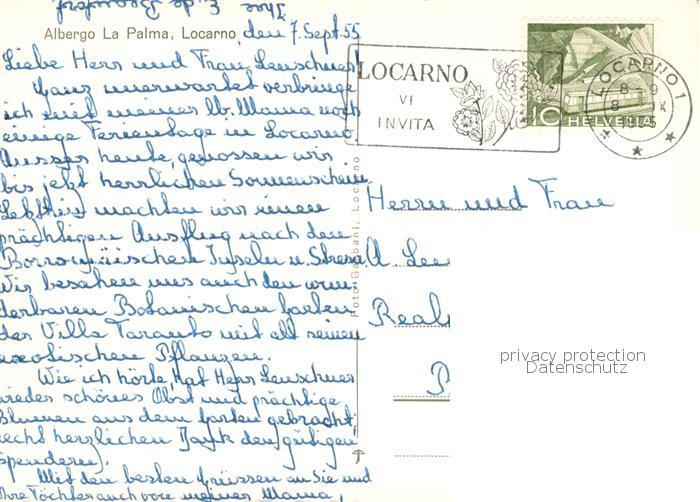 Albergo La Palma, Locarno, den 7. Sept. 55
Liebe Herr und Frau Leuschner!
Ganz unerwartet verbringe
ich mit meiner lb. Mama noch
einige Ferientage in Locarno.
Ausser heute, genossen wir
bis jetzt herrlichen Sonnenschein.
Letzthin machten wir einen
prächtigen Ausflug nach den
Borromäischen Inseln u. Stresa.
Wir besahen uns auch den wun-
derbaren Botanischen Garten
der Villa Taranto mit all seinen
exotischen Pflanzen.
Wie ich hörte, hat Herr Leuschner
wieder schönes Obst und prächtige
Blumen aus dem Garten gebracht.
(recht herzlichen Dank den gütigen
Spendern).
Mit den besten Grüssen an Sie und
Ihre Töchter auch von meiner Mama,
Ihre E. de
LOCARNO
VI
INVITA
10 HELVETIA
LOCARNO 1
8-9
8 IX
1955
Foto Garbani, Locarno
Herrn und Frau
A. Leu
Real
privacy protection
Datenschutz